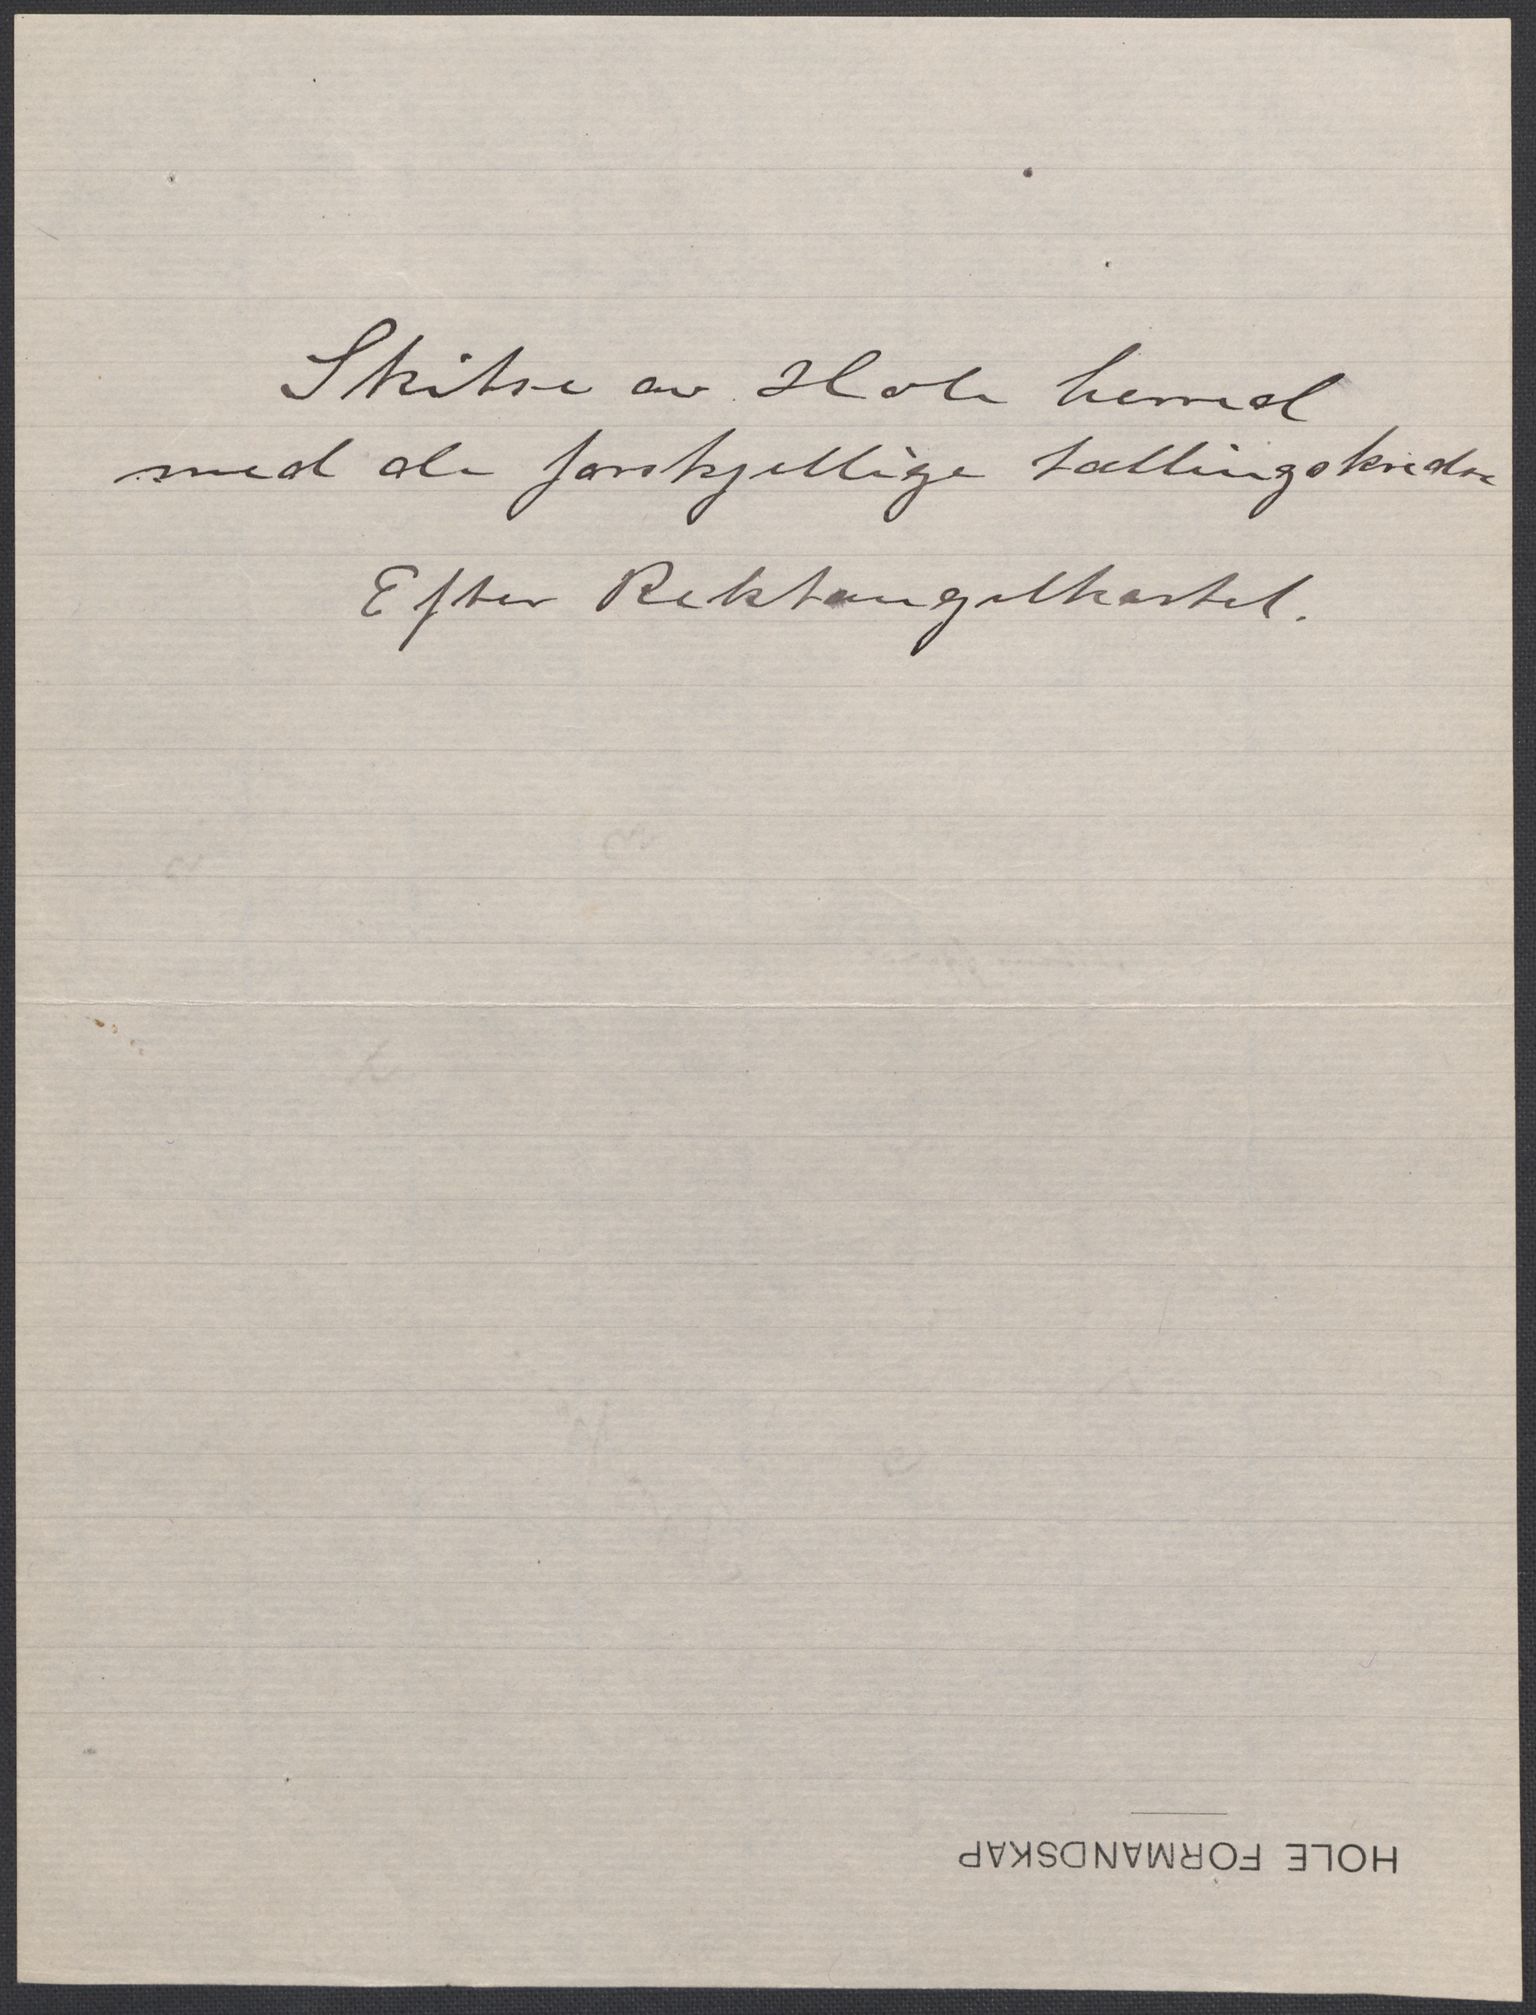 Skitse av Hole herred
med de forskjellige tællingskredse
Efter Rektangelkartet.
HOLE FORMANDSKAP